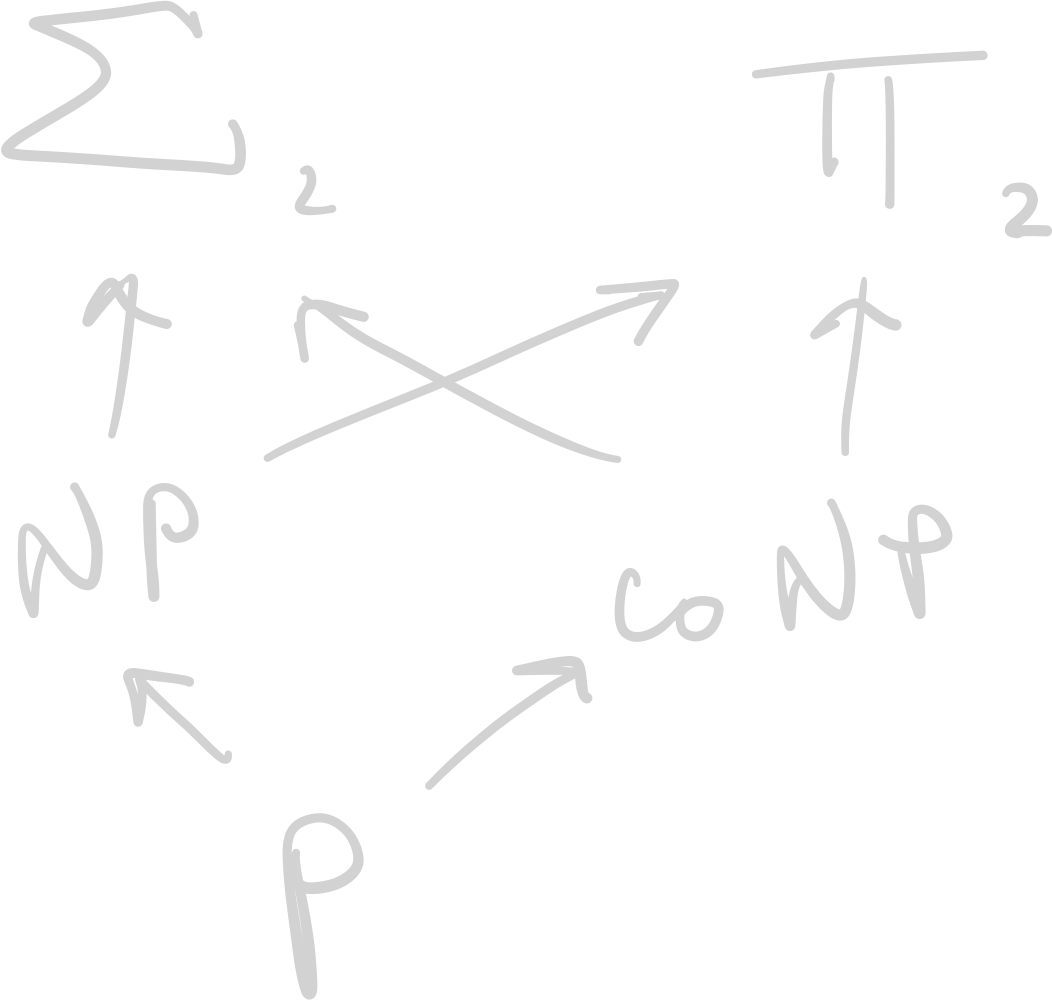 Σ₂ Π₂
NP coNP
P